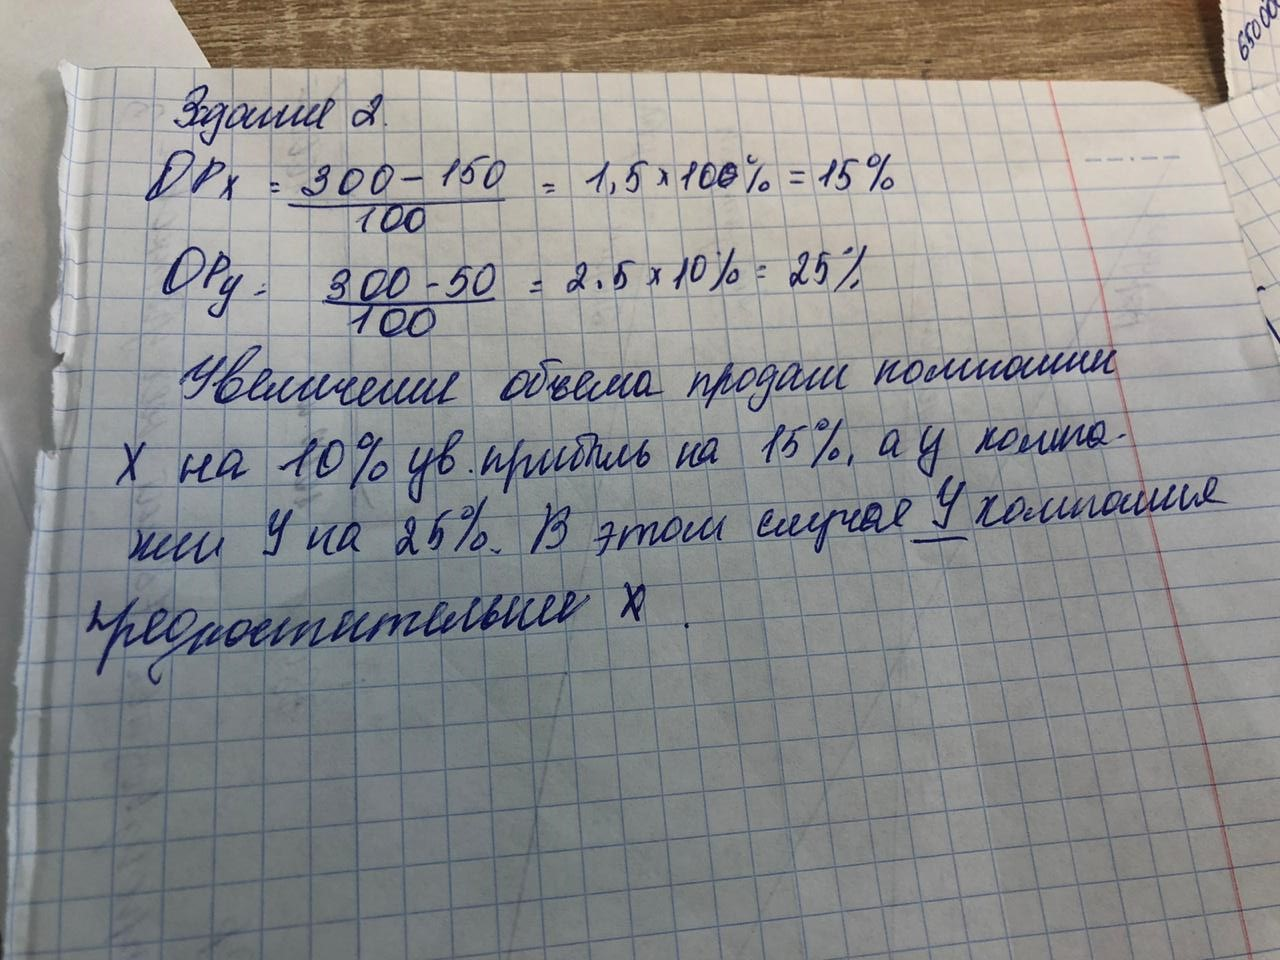 Задание 2.
ОРх = 300 - 150 / 100 = 1,5 × 100% = 15%
ОРу = 300 - 50 / 100 = 2.5 × 10% = 25%
Увеличение объема продаж компании
Х на 10% ув. прибыль на 15%, а у компа-
нии У на 25%. В этом случае У компания
предпочтительнее Х.
65000